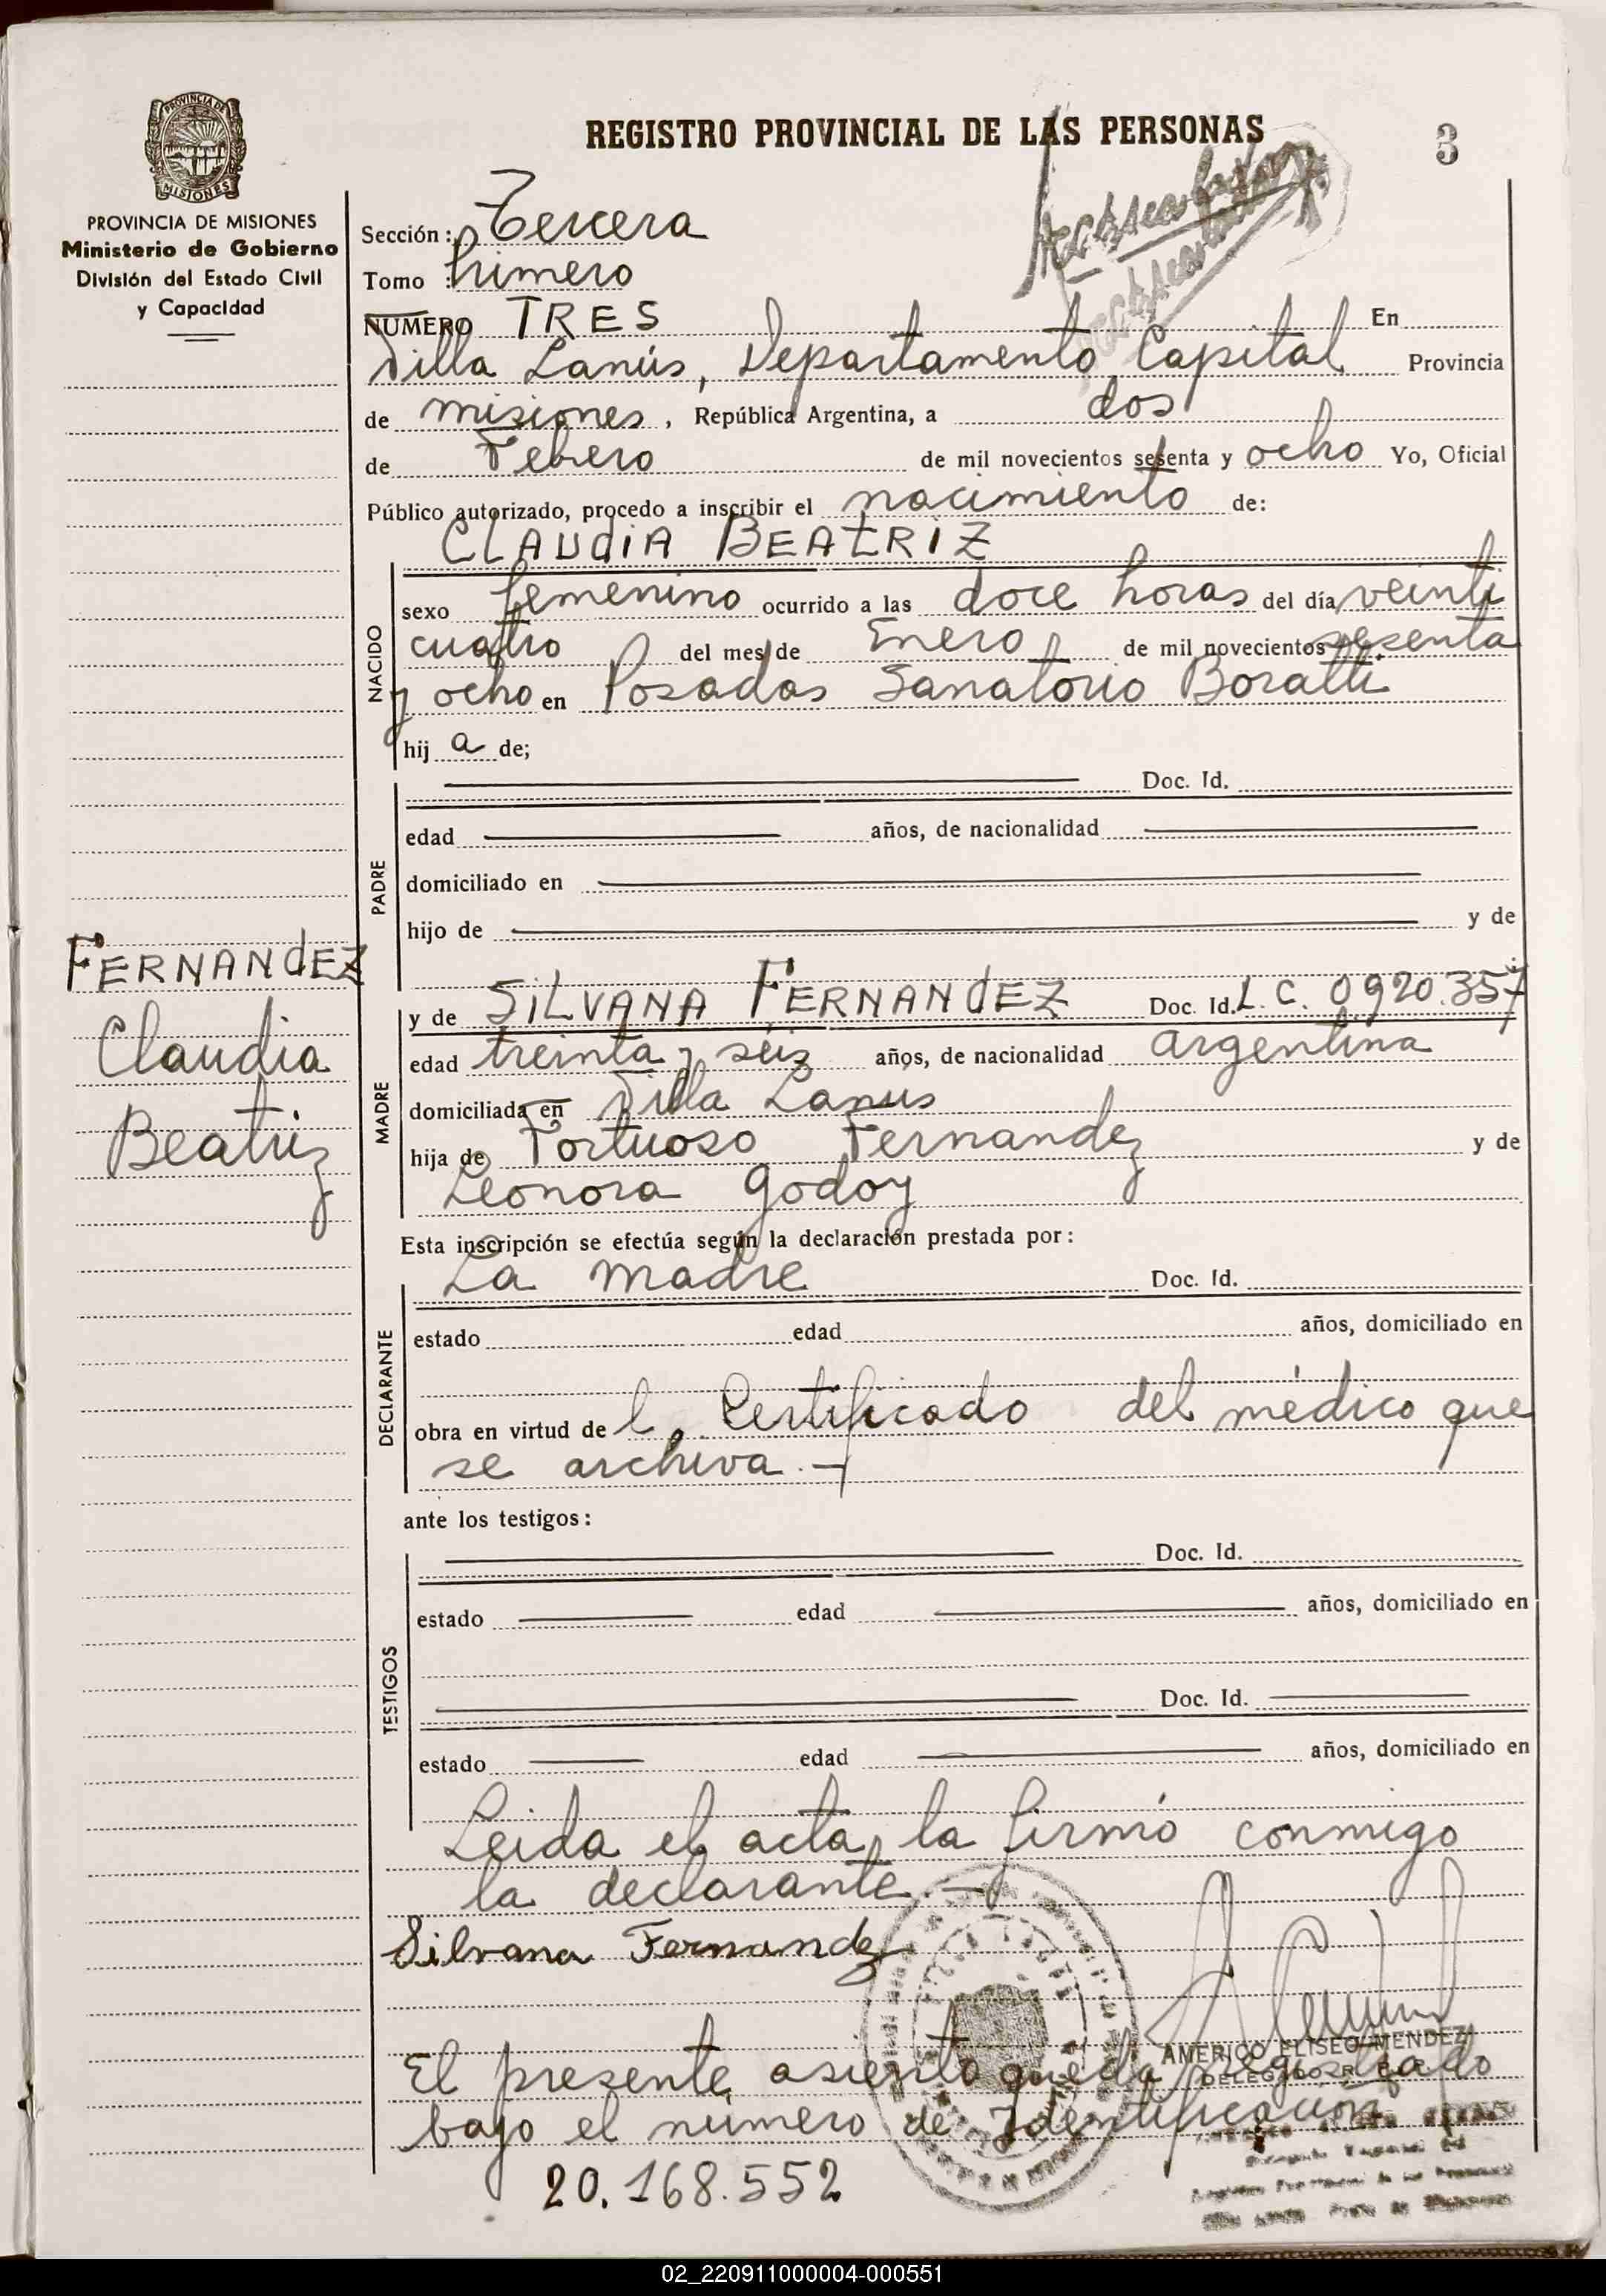 PROVINCIA DE
MISIONES
PROVINCIA DE MISIONES
Ministerio de Gobierno
División del Estado Civil
y Capacidad
REGISTRO PROVINCIAL DE LAS PERSONAS
3
Sección: Tercera
Tomo: Primero
NUMERO TRES En
Villa Lanús, Departamento Capital Provincia
de misiones, República Argentina, a dos
de Febrero de mil novecientos sesenta y ocho Yo, Oficial
Público autorizado, procedo a inscribir el nacimiento de:
CLAUdiA BEATRIZ
NACIDO
sexo femenino ocurrido a las doce horas del día veinti
cuatro del mes de Enero de mil novecientos sesenta
y ocho en Posadas Sanatorio Boratti
hij a de;
PADRE
Doc. Id.
edad años, de nacionalidad
domiciliado en
hijo de y de
FERNANdEZ
Claudia
Beatriz
MADRE
y de SiLVANA FERNANdEZ Doc. Id. L.C. 0920.357
edad treinta y séis años, de nacionalidad argentina
domiciliada en Villa Lanus
hija de Fortuoso Fernandez y de
Leonora Godoy
Esta inscripción se efectúa según la declaración prestada por:
DECLARANTE
La madre Doc. Id.
estado edad años, domiciliado en
obra en virtud de l. Certificado del médico que
se archiva.-
ante los testigos:
TESTIGOS
Doc. Id.
estado edad años, domiciliado en
Doc. Id.
estado edad años, domiciliado en
Leida el acta, la firmó conmigo
la declarante.-
Silvana Fernandez
AMERICO ELISEO MENDEZ
DELEGADO R.
El presente asiento queda registrado
bajo el número de Identificación
20.168.552
02_220911000004-000551